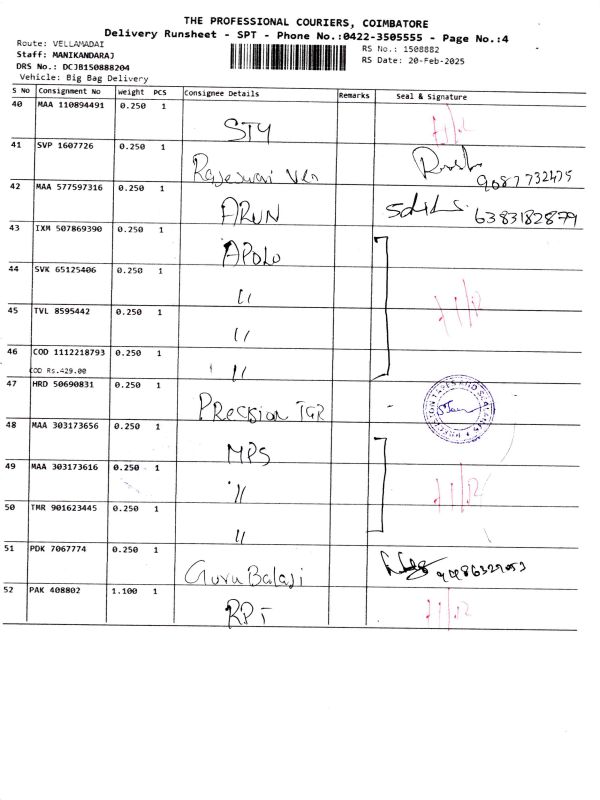 THE PROFESSIONAL COURIERS, COIMBATORE
Delivery Runsheet - SPT - Phone No.:0422-3505555 - Page No.:4
Route: VELLAMADAI
RS No.: 1508882
Staff: MANIKANDARAJ
RS Date: 20-Feb-2025
DRS No.: DCJB150888204
Vehicle: Big Bag Delivery
S No Consignment No Weight PCS Consignee Details Remarks Seal & Signature
40 MAA 110894491 0.250 1
STY
41 SVP 1607726 0.250 1
Rajeswari
9087732475
42 MAA 577597316 0.250 1
ARUN
6383182879
43 IXM 507869390 0.250 1
APOLO
44 SVK 65125406 0.250 1
"
45 TVL 8595442 0.250 1
"
46 COD 1112218793 0.250 1
COD Rs.429.00 "
47 HRD 50690831 0.250 1
Precision
48 MAA 303173656 0.250 1
MPS
49 MAA 303173616 0.250 1
"
50 TMR 901623445 0.250 1
"
51 PDK 7067774 0.250 1
Guru Balaji
52 PAK 408802 1.100 1
RPT